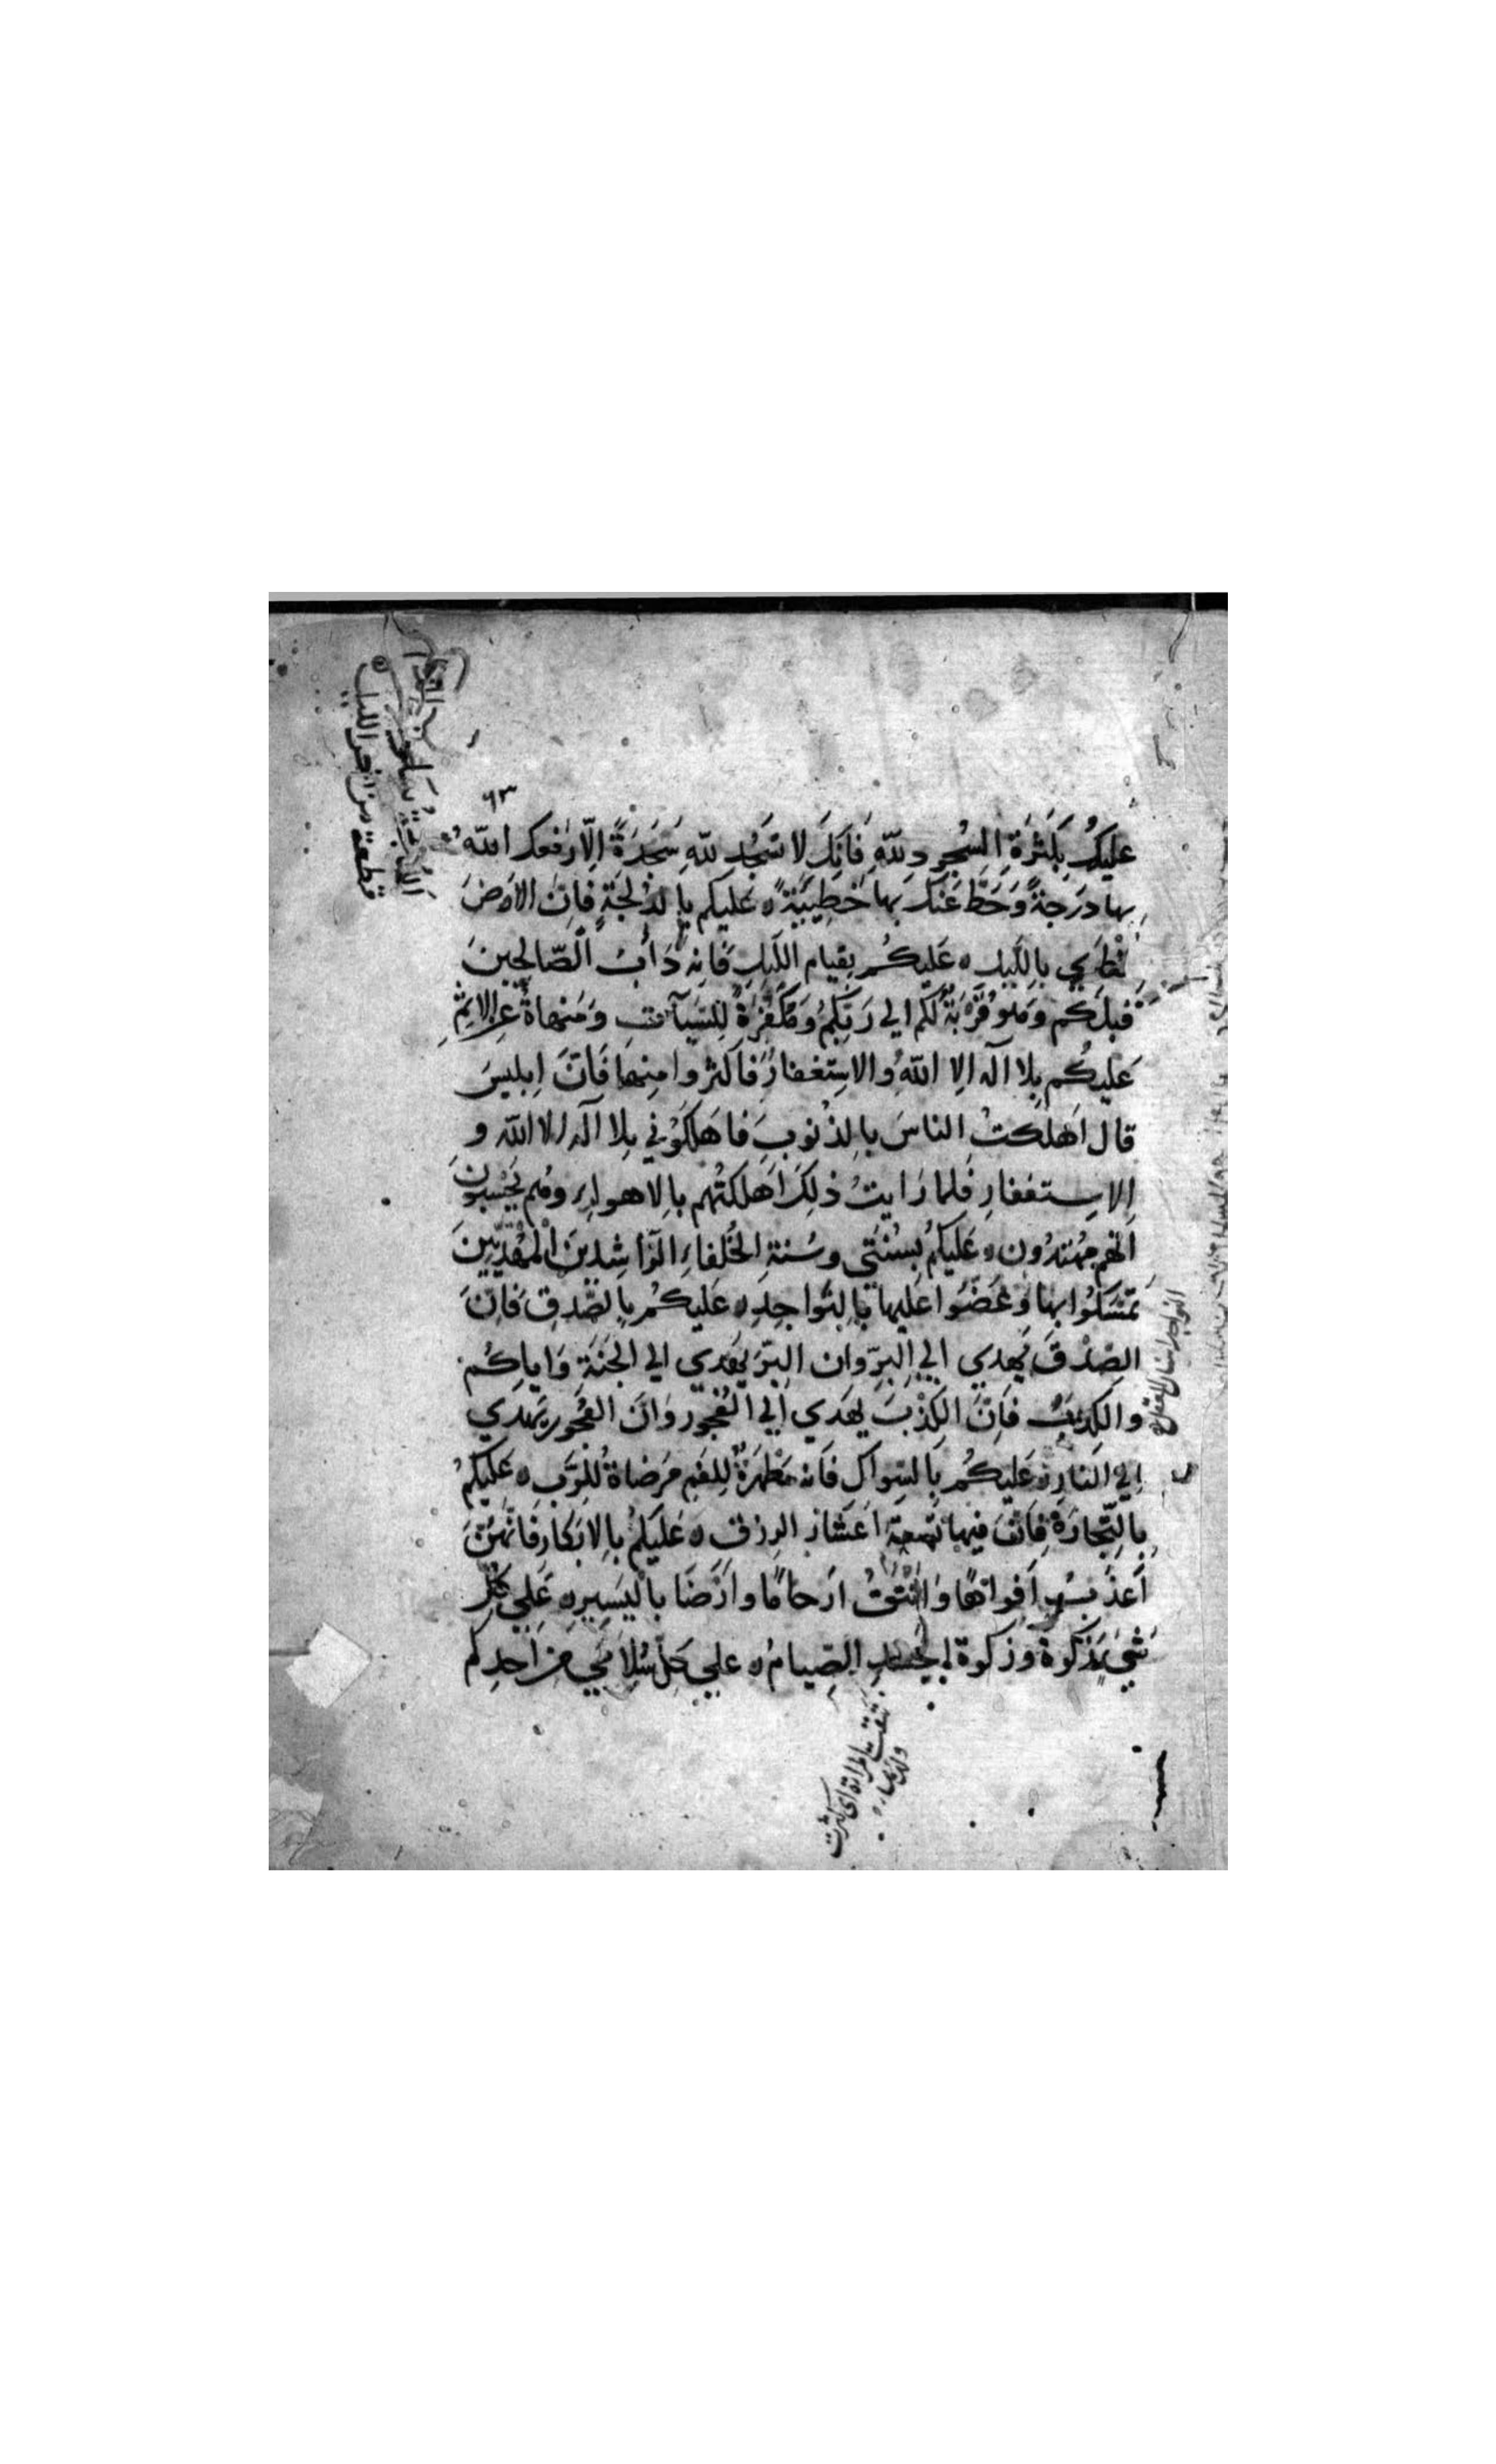 ٦٣
عليكَ بِكَثرَةِ السُّجودِ للّهِ فَاِنَّكَ لا تَسجُد للّهِ سَجدَةً اِلّا رَفَعك اللّهُ
بها دَرَجةً وَحَطَّ عَنكَ بها خَطِيئةً ٥ عَليكم بالدُلجَةِ فاِنَّ الاَرضَ
تُطوَي بالليلِ ٥ عَليكُم بِقيام الليلِ فَاِنه دَأبُ الصّالِحِينَ
قَبلَكم وَهو قُرْبَةٌ لَكم الي رَبِّكمُ وَمَكفَرَةٌ للِسَّيآتِ وَمَنهاةٌ عن الاِثمِ
عَليكُم بِلا اله الا اللّهُ والاستِغفار فاَكثروا منِهما فَاِنَّ اِبليسَ
قال اَهلكتُ الناسَ بالذنوبِ فاهَلكوُني بلا اله الا اللّه و
الاِستغفارِ فلما رَايتُ ذلِكَ اَهلكتُهم بالاهواءِ وهُم يَحْسِبُونَ
اَنهم مُهتدُون ٥ عَليكمُ بسُنّتي وسُنةِ الخُلفاءِ الرَّاشِدينَ المَهْدِيّينَ
تمَسَّكُوا بها وَعَضّوُا عَليها بالنَّواجِذِ ٥ عَليكُم بالصّدقِ فَاِنَّ
الصِّدْقَ يَهدي الي البِرِّ وان البِرّ يَهدي الي الجَنّةِ وَاياكُم
والكذبَ فاِنّ الكِذْبَ يهَدي اِلي الفُجُور وَانّ الفُجُور يَهدي
اِلي النّارِ ٥ عَليكُم بالسِواك فَاَنه مَطْهَرَةٌ للِفَمِ مَرَضاةٌ للرَّبِ ٥ عَليكمُ
بالتِّجارَة فِاَنَّ فيها تسعةَ اَعشار الرزق ٥ عَليَكُم بالاَبكار فاَنّهُنَّ
اَعذَبُ اَفواهًا وَانْتَقُ ارَحامًا وارَضَا باليَسِيرِ ٥ عَلي كلِّ
شَيءٍ زكوةٌ وزكوة الجَسَدِ الصِّيامُ ٥ علي كلّ سُلاَمَي مِن اَحدِكُم
النواجذ اسنان العقل
نتقت المراة اي كثرت
ولدها
قطعة من اخر الليل